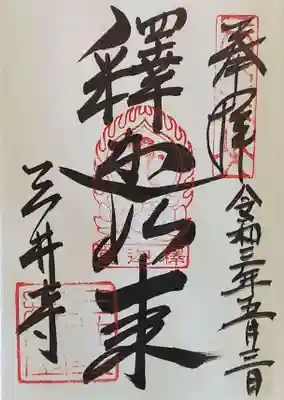 奉拝
令和三年五月三日
釋迦如来
三井寺
釋迦